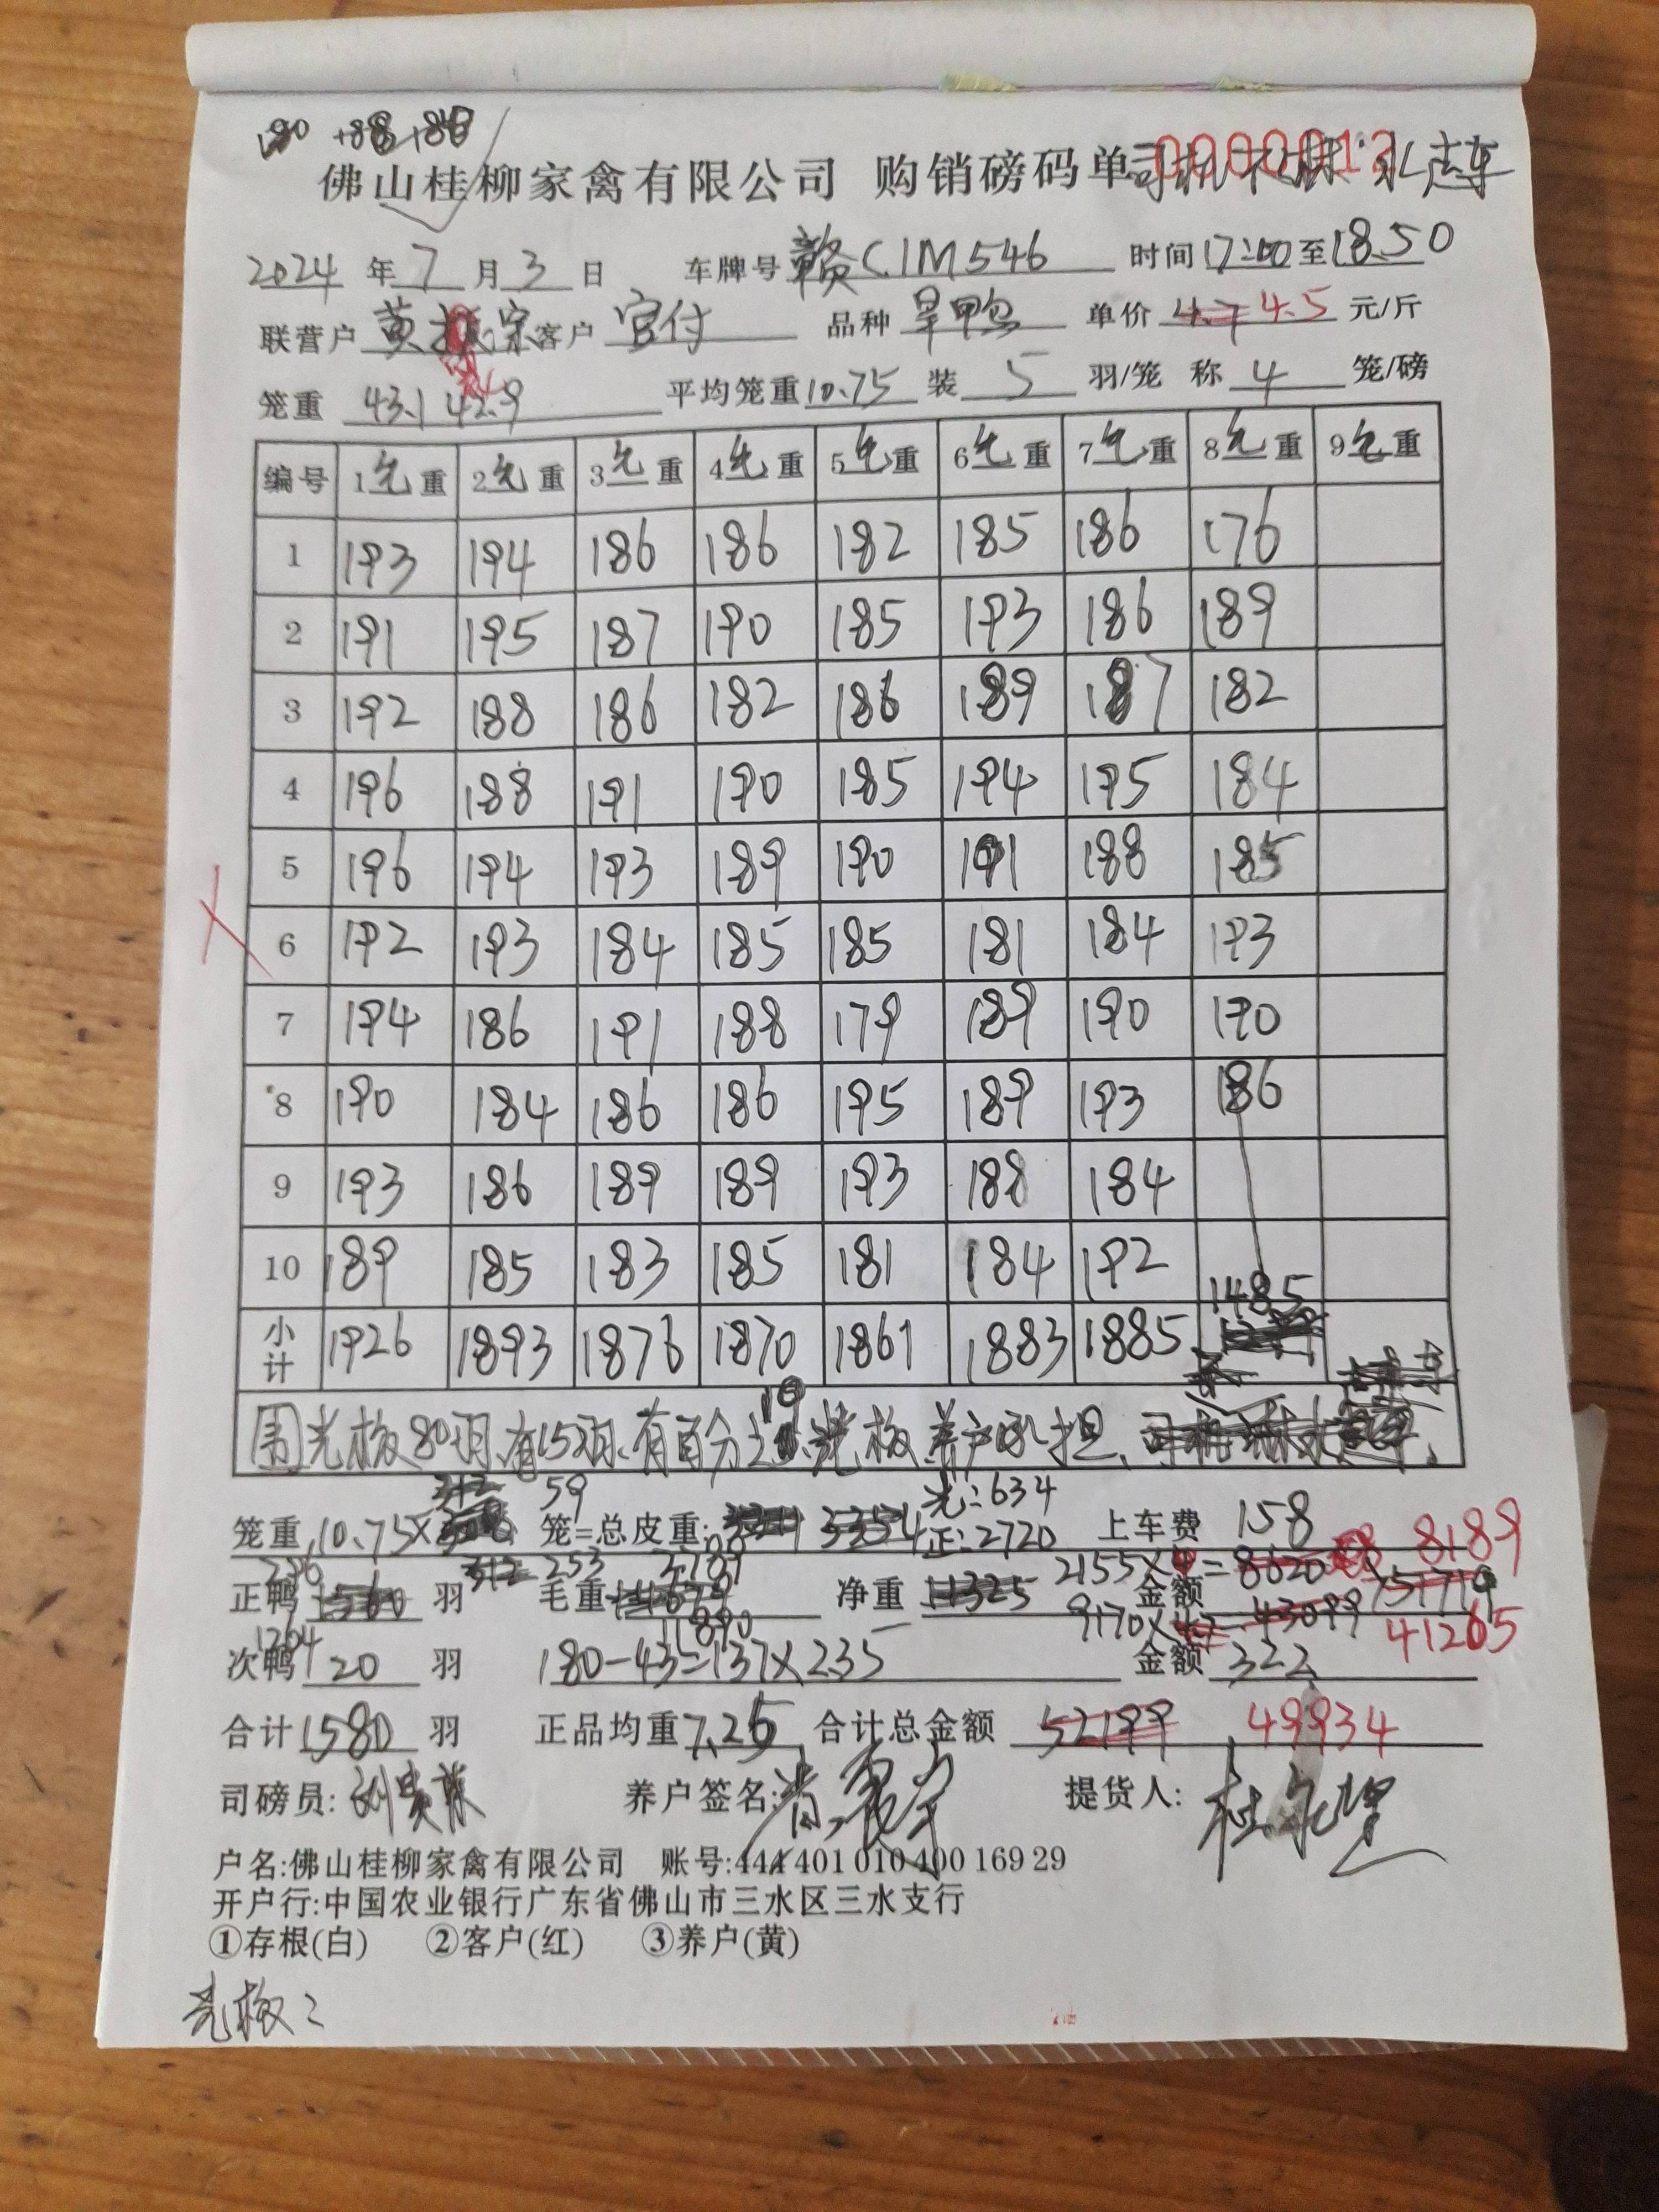 180 +88+848
佛山桂柳家禽有限公司 购销磅码单 0000012
2024 年 7 月 3 日 车牌号 赣C1M546 时间 17:00 至 18:50
联营户 黄 宗 客户 官付 品种 旱鸭 单价 4.7 4.5 元/斤
笼重 43.1 42.9 平均笼重 10.75 装 5 羽/笼 称 4 笼/磅
编号 1毛重 2毛重 3毛重 4毛重 5毛重 6毛重 7毛重 8毛重 9毛重
1 193 194 186 186 182 185 186 176
2 191 195 187 190 185 193 186 189
3 192 188 186 182 186 189 187 182
4 196 188 191 190 185 194 195 184
5 196 194 193 189 190 191 188 185
6 192 193 184 185 185 181 184 193
7 194 186 191 188 179 189 190 190
8 190 184 186 186 195 189 193 186
9 193 186 189 189 193 188 184
10 189 185 183 185 181 184 192
1485
小计 1926 1893 1876 1870 1861 1883 1885
围光板80羽.有15羽.有百分之10 光板养户承担、
312 59 光:634
笼重 10.75× 笼=总皮重: 3354 正:2720 上车费 158
236 312 253 2155×4=8620 8189
正鸭 1560 羽 毛重 14679 净重 11325 金额 51719
1264 11890 9170×4.7=43099 41265
次鸭 20 羽 180-43=137×2.35 金额 322
合计 1580 羽 正品均重 7.25 合计总金额 52199 49934
司磅员: 养户签名: 提货人:
户名:佛山桂柳家禽有限公司 账号:444 401 010 400 169 29
开户行:中国农业银行广东省佛山市三水区三水支行
①存根(白) ②客户(红) ③养户(黄)
光板: